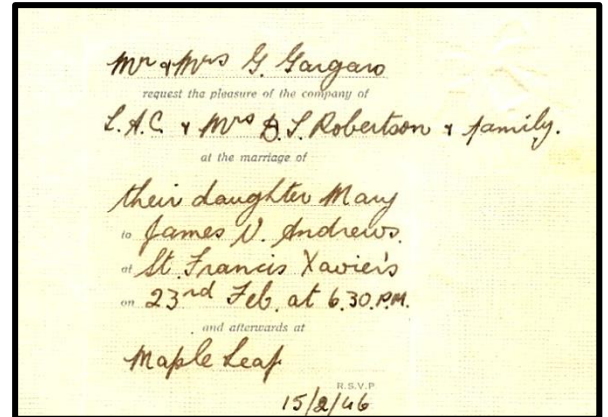 Mr & Mrs G. Gargaro
request the pleasure of the company of
L.A.C. & Mrs D.S. Robertson & family.
at the marriage of
their daughter Mary
to James V. Andrews.
at St. Francis Xavier's
on 23rd Feb. at 6.30.P.M.
and afterwards at
Maple Leaf
R.S.V.P
15/2/46